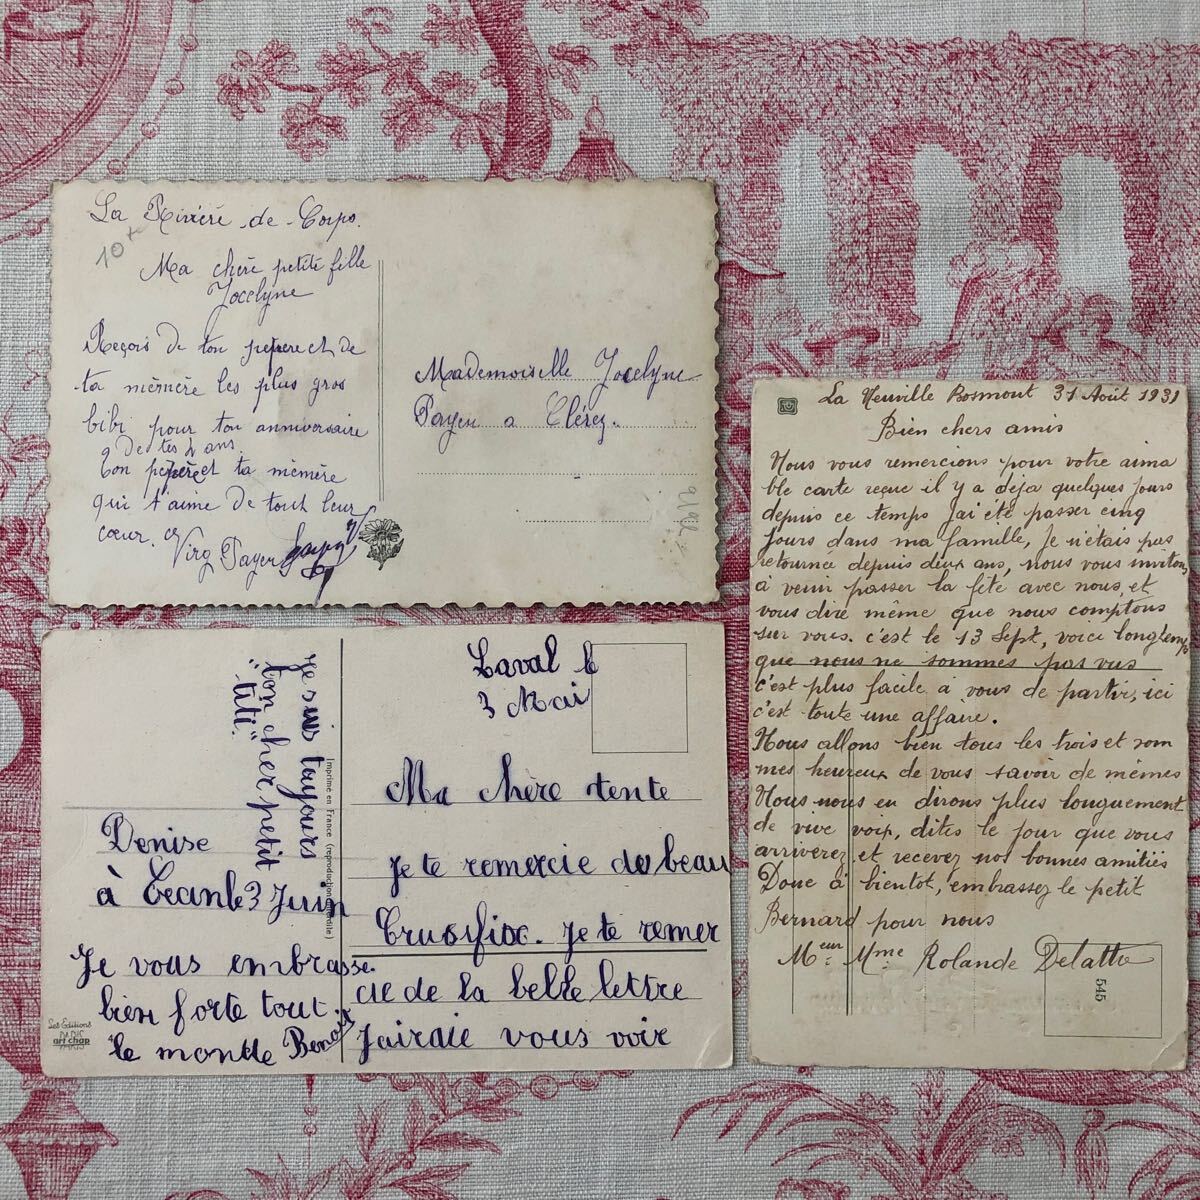 La Rivière de Corps.
10
Ma chère petite fille
Jocelyne
Reçois de ton pepere et de
ta mémère les plus gros
bibi pour ton anniversaire
de tes 2 ans.
ton pepere et ta mémère
qui t'aime de tout leur
cœur.
Virg Payen
Mademoiselle Jocelyne
Payen a Clérey.
Laval le
3 Mai
Ma chère tente
je te remercie de beau
Crusifix. je te remer
cie de la belle lettre
J'airaie vous voir
Denise
à Ceanle 3 Juin
Je vous embrasse
bien forte tout
le monde Benoit
je suis toujours
ton cher petit
"titi"
Imprimé en France (reproduction interdite)
Les Editions
PARIS
art chap
PARIS
La Neuville Bosmont 31 Août 1931
Bien chers amis
Nous vous remercions pour votre aima
ble carte reçue il y a déja quelques jours
depuis ce temps j'ai été passer cinq
jours dans ma famille, Je n'étais pas
retournée depuis deux ans, nous vous invitons
à venir passer la fête avec nous, et
vous dire même que nous comptons
sur vous. c'est le 13 Sept, voici longtemps
que nous ne sommes pas vus
c'est plus facile à vous de partir, ici
c'est toute une affaire.
Nous allons bien tous les trois et som
mes heureux de vous savoir de mêmes
Nous nous en dirons plus longuement
de vive voix, dites le jour que vous
arriverez et recevez nos bonnes amitiés
Donc à bientot, embrassez le petit
Bernard pour nous
Meur Mme Rolande Delatte
545